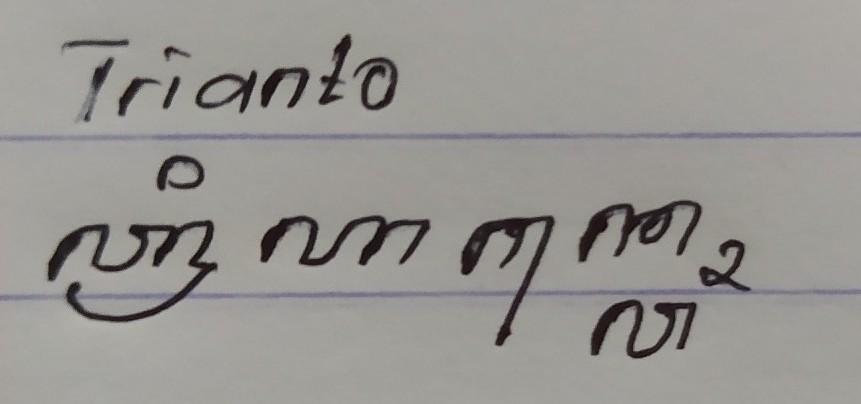 Trianto
ꦠꦿꦶꦲꦤ꧀ꦠꦺꦴ